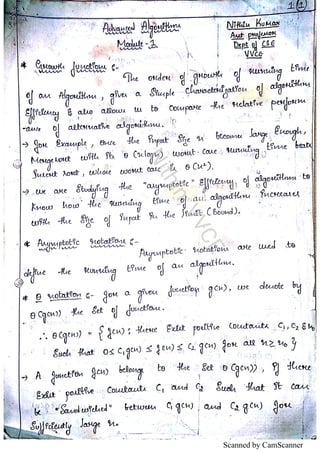 1 (1)
Advanced Algorithm
Module-1
Nithin Kumar
Asst professor
Dept of CSE
VVCE
* Growth function :-
The order of growth of running time
of an Algorithm, gives a Simple characterization of algorithm
Efficiency & also allows us to compare the relative perform
-ance of alternative algorithm.
→ For Example, once the Input Size n becomes large Enough,
Merge sort with its θ(n logn) worst-case running time beats
Insert sort, whose worst case is θ(n²).
→ we are Studying the "asymptotic" Efficiency of algorithms to
know how the running time of an algorithm Increases
with the Size of Input in the limit (bound).
* Asymptotic notation :-
Asymptotic notations are used to
define the running time of an algorithm.
* θ notation :- for a given function g(n), we denote by
θ(g(n)) the Set of function.
∴ θ(g(n)) = { f(n) : there Exist positive constants C1, C2 & n0
Such that 0 ≤ C1 g(n) ≤ f(n) ≤ C2 g(n) for all n ≥ n0 }
→ A function f(n) belongs to the Set θ(g(n)), If there
Exist positive constants C1 and C2 Such that it can
be "Sandwitched" between C1 g(n) and C2 g(n) for
Sufficiently large n.
Scanned by CamScanner